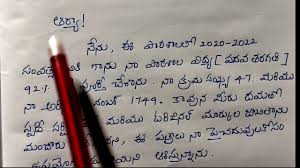 ఆర్యా!
నేను, ఈ పాఠశాలలో 2020-2022
సంవత్స కాను నా పాఠశాల విద్య [ పదవ తరగతి ]
92% పూర్తి చేశాను. నా క్రమ సంఖ్య 47. మరియు
నా అడ్మి నంబర్ 1749. కావున మీరు దయతో
మరియు మార్కుల జాబితాను
ఈ పత్రాలు నా పైచదువులకోసం
ఆశిస్తున్నాను.